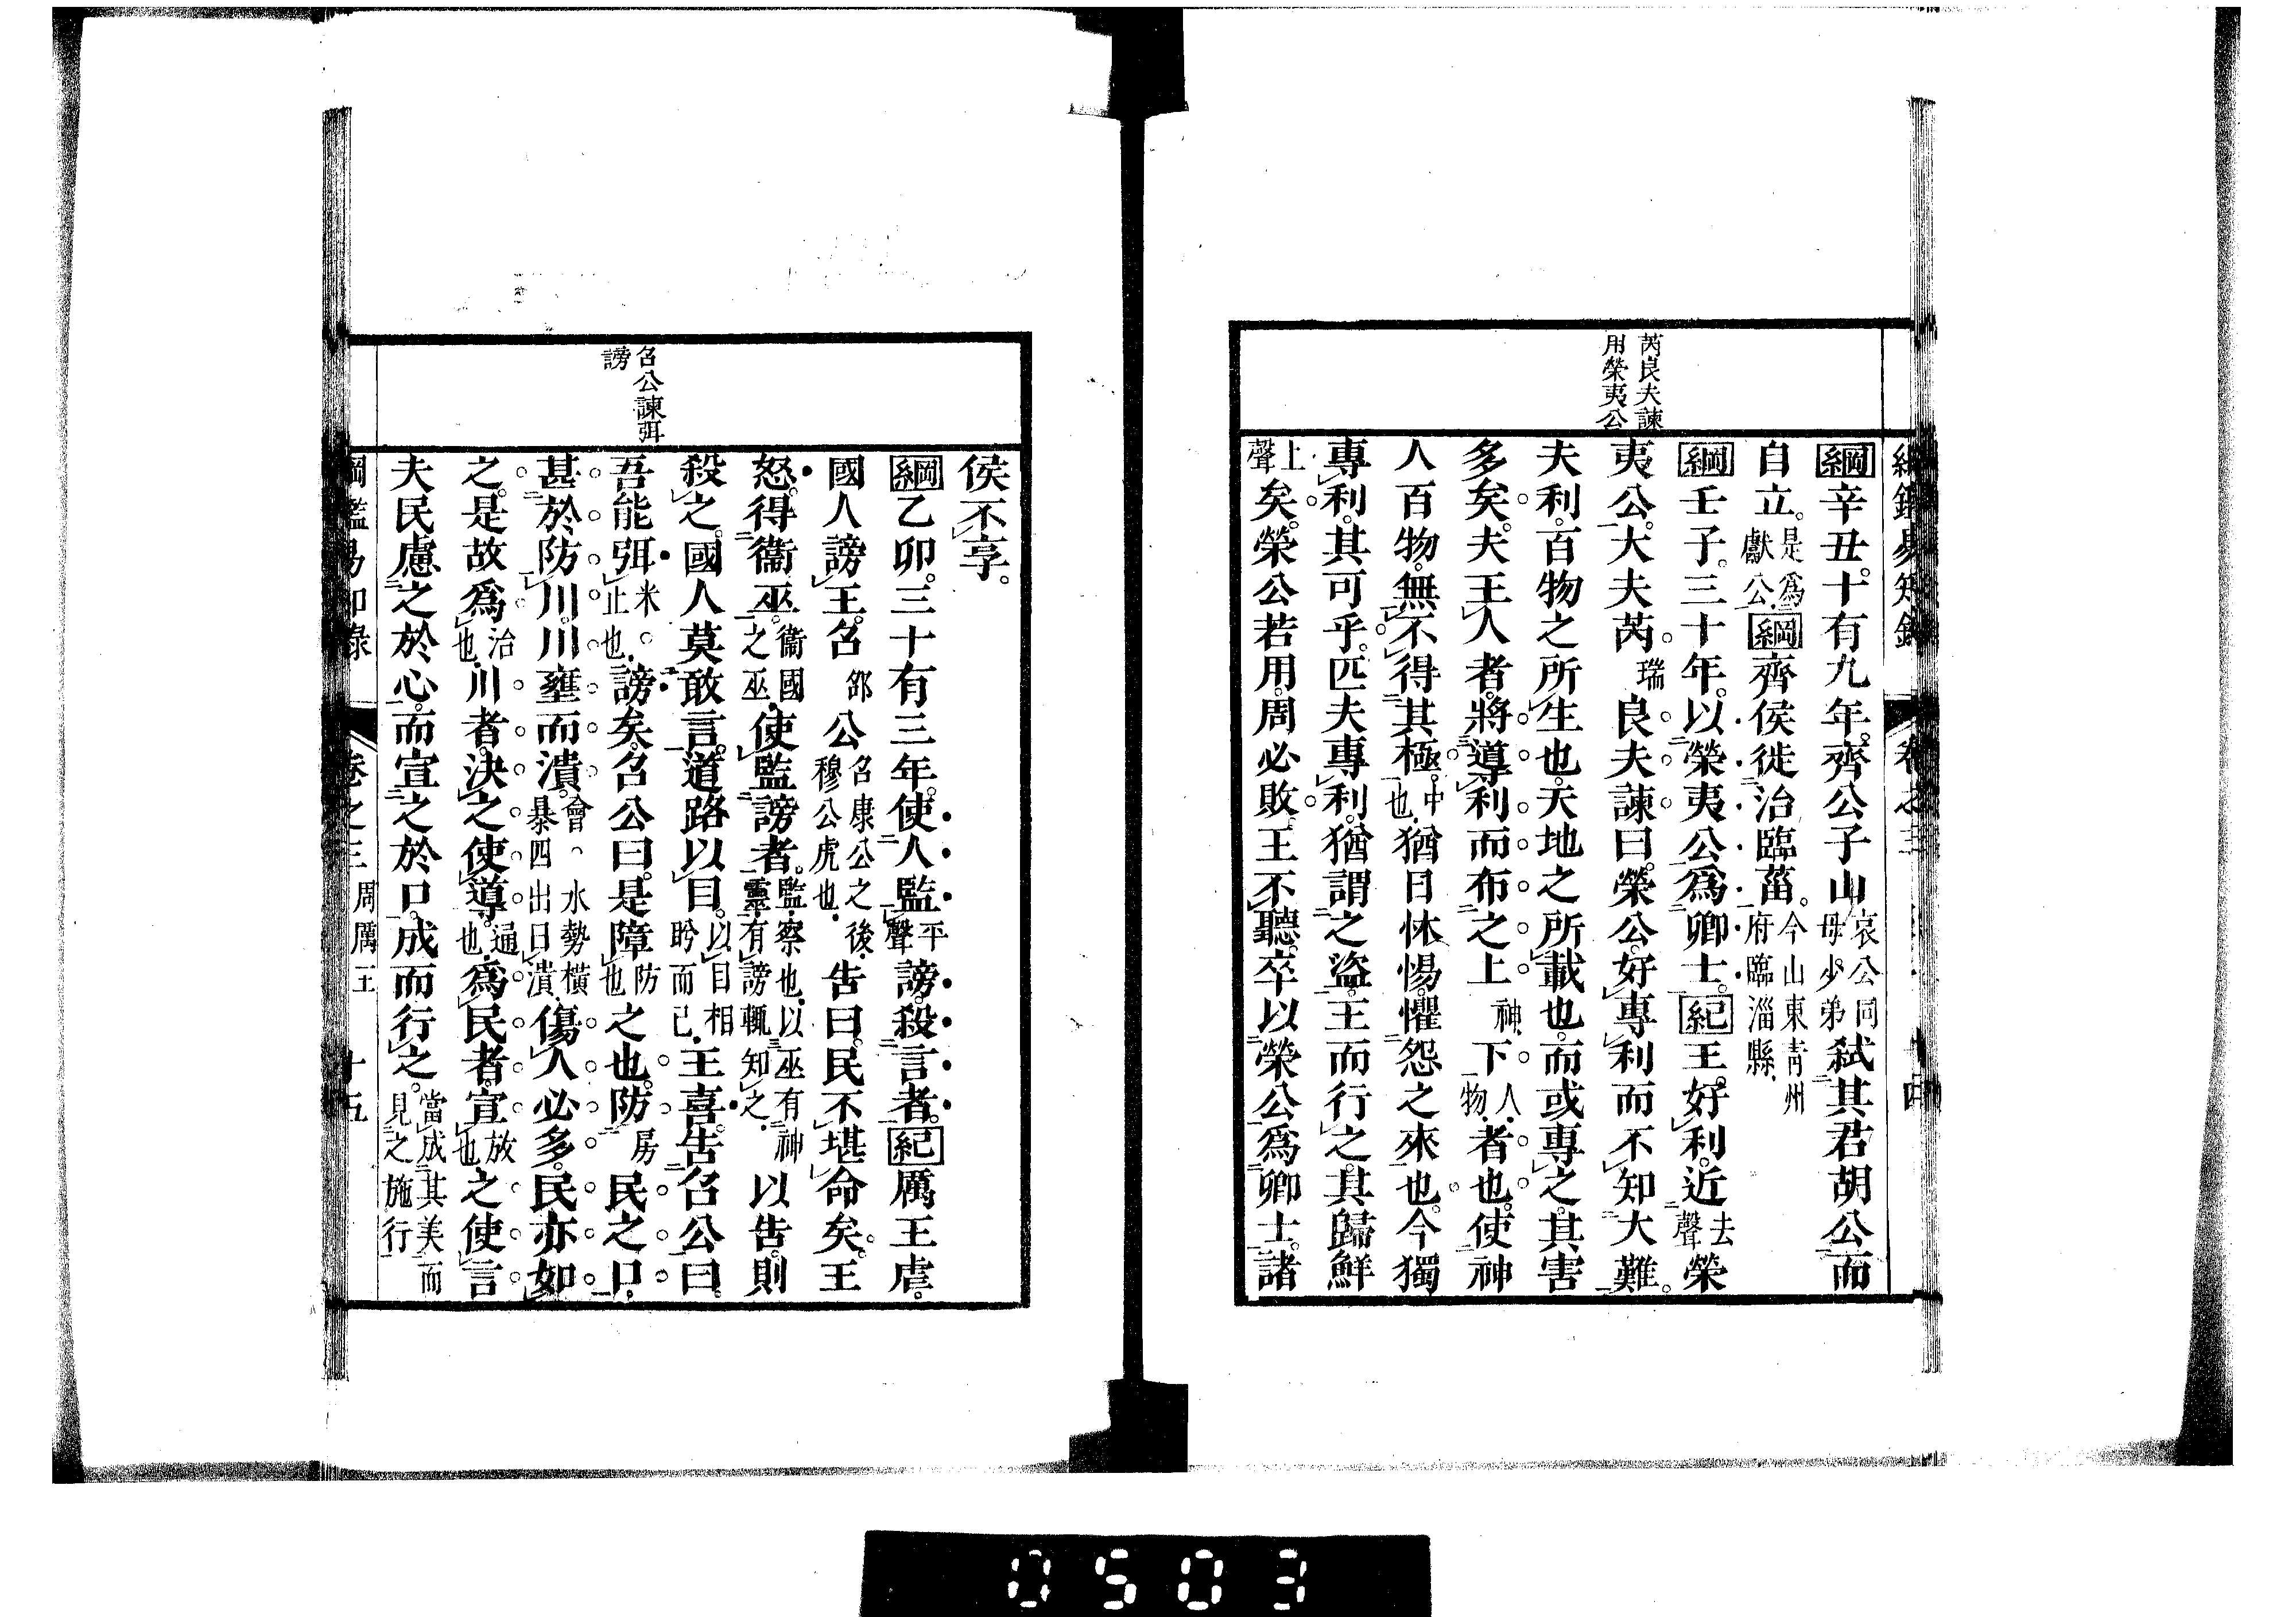 芮良夫諫
用榮夷公
綱辛丑。十有九年。齊公子山哀公同母少弟弑其君胡公而
自立。是爲獻公。綱齊侯徙治臨菑。今山東青州府臨淄縣。
綱壬子。三十年。以榮夷公爲卿士。紀王好利。近去聲榮
夷公。大夫芮瑞良夫諫曰。榮公好專利而不知大難。
夫利。百物之所生也。天地之所載也。而或專之。其害
多矣。夫王人者。將導利而布之上神。下人。物。者也。使神
人百物。無不得其極。中也。猶日怵惕。懼怨之來也。今獨
專利。其可乎。匹夫專利。猶謂之盜。王而行之。其歸鮮
上聲矣。榮公若用。周必敗。王不聽。卒以榮公爲卿士。諸
綱鑑易知錄 卷之三 十四
侯不享。
綱乙卯。三十有三年。使人監平聲謗。殺言者。紀厲王虐。
國人謗王。召邵公召康公之後。穆公虎也。告曰。民不堪命矣。王
怒。得衞巫。衞國之巫。使監謗者。監。察也。以巫有神靈。有謗輒知之。以告。則
殺之。國人莫敢言。道路以目。以目相眄而已。王喜。告召公曰。
吾能弭米。止也。謗矣。召公曰。是障防也之也。防房民之口。
甚於防川。川壅而潰。會。水勢橫暴四出曰潰。傷人必多。民亦如
之。是故爲治也。川者。決之使導。通也。爲民者。宣放也之使言
夫民慮之於心。而宣之於口。成而行之。當成其美而見之施行
召公諫弭
謗
綱鑑易知錄 卷之三 周厲王 十五
0503